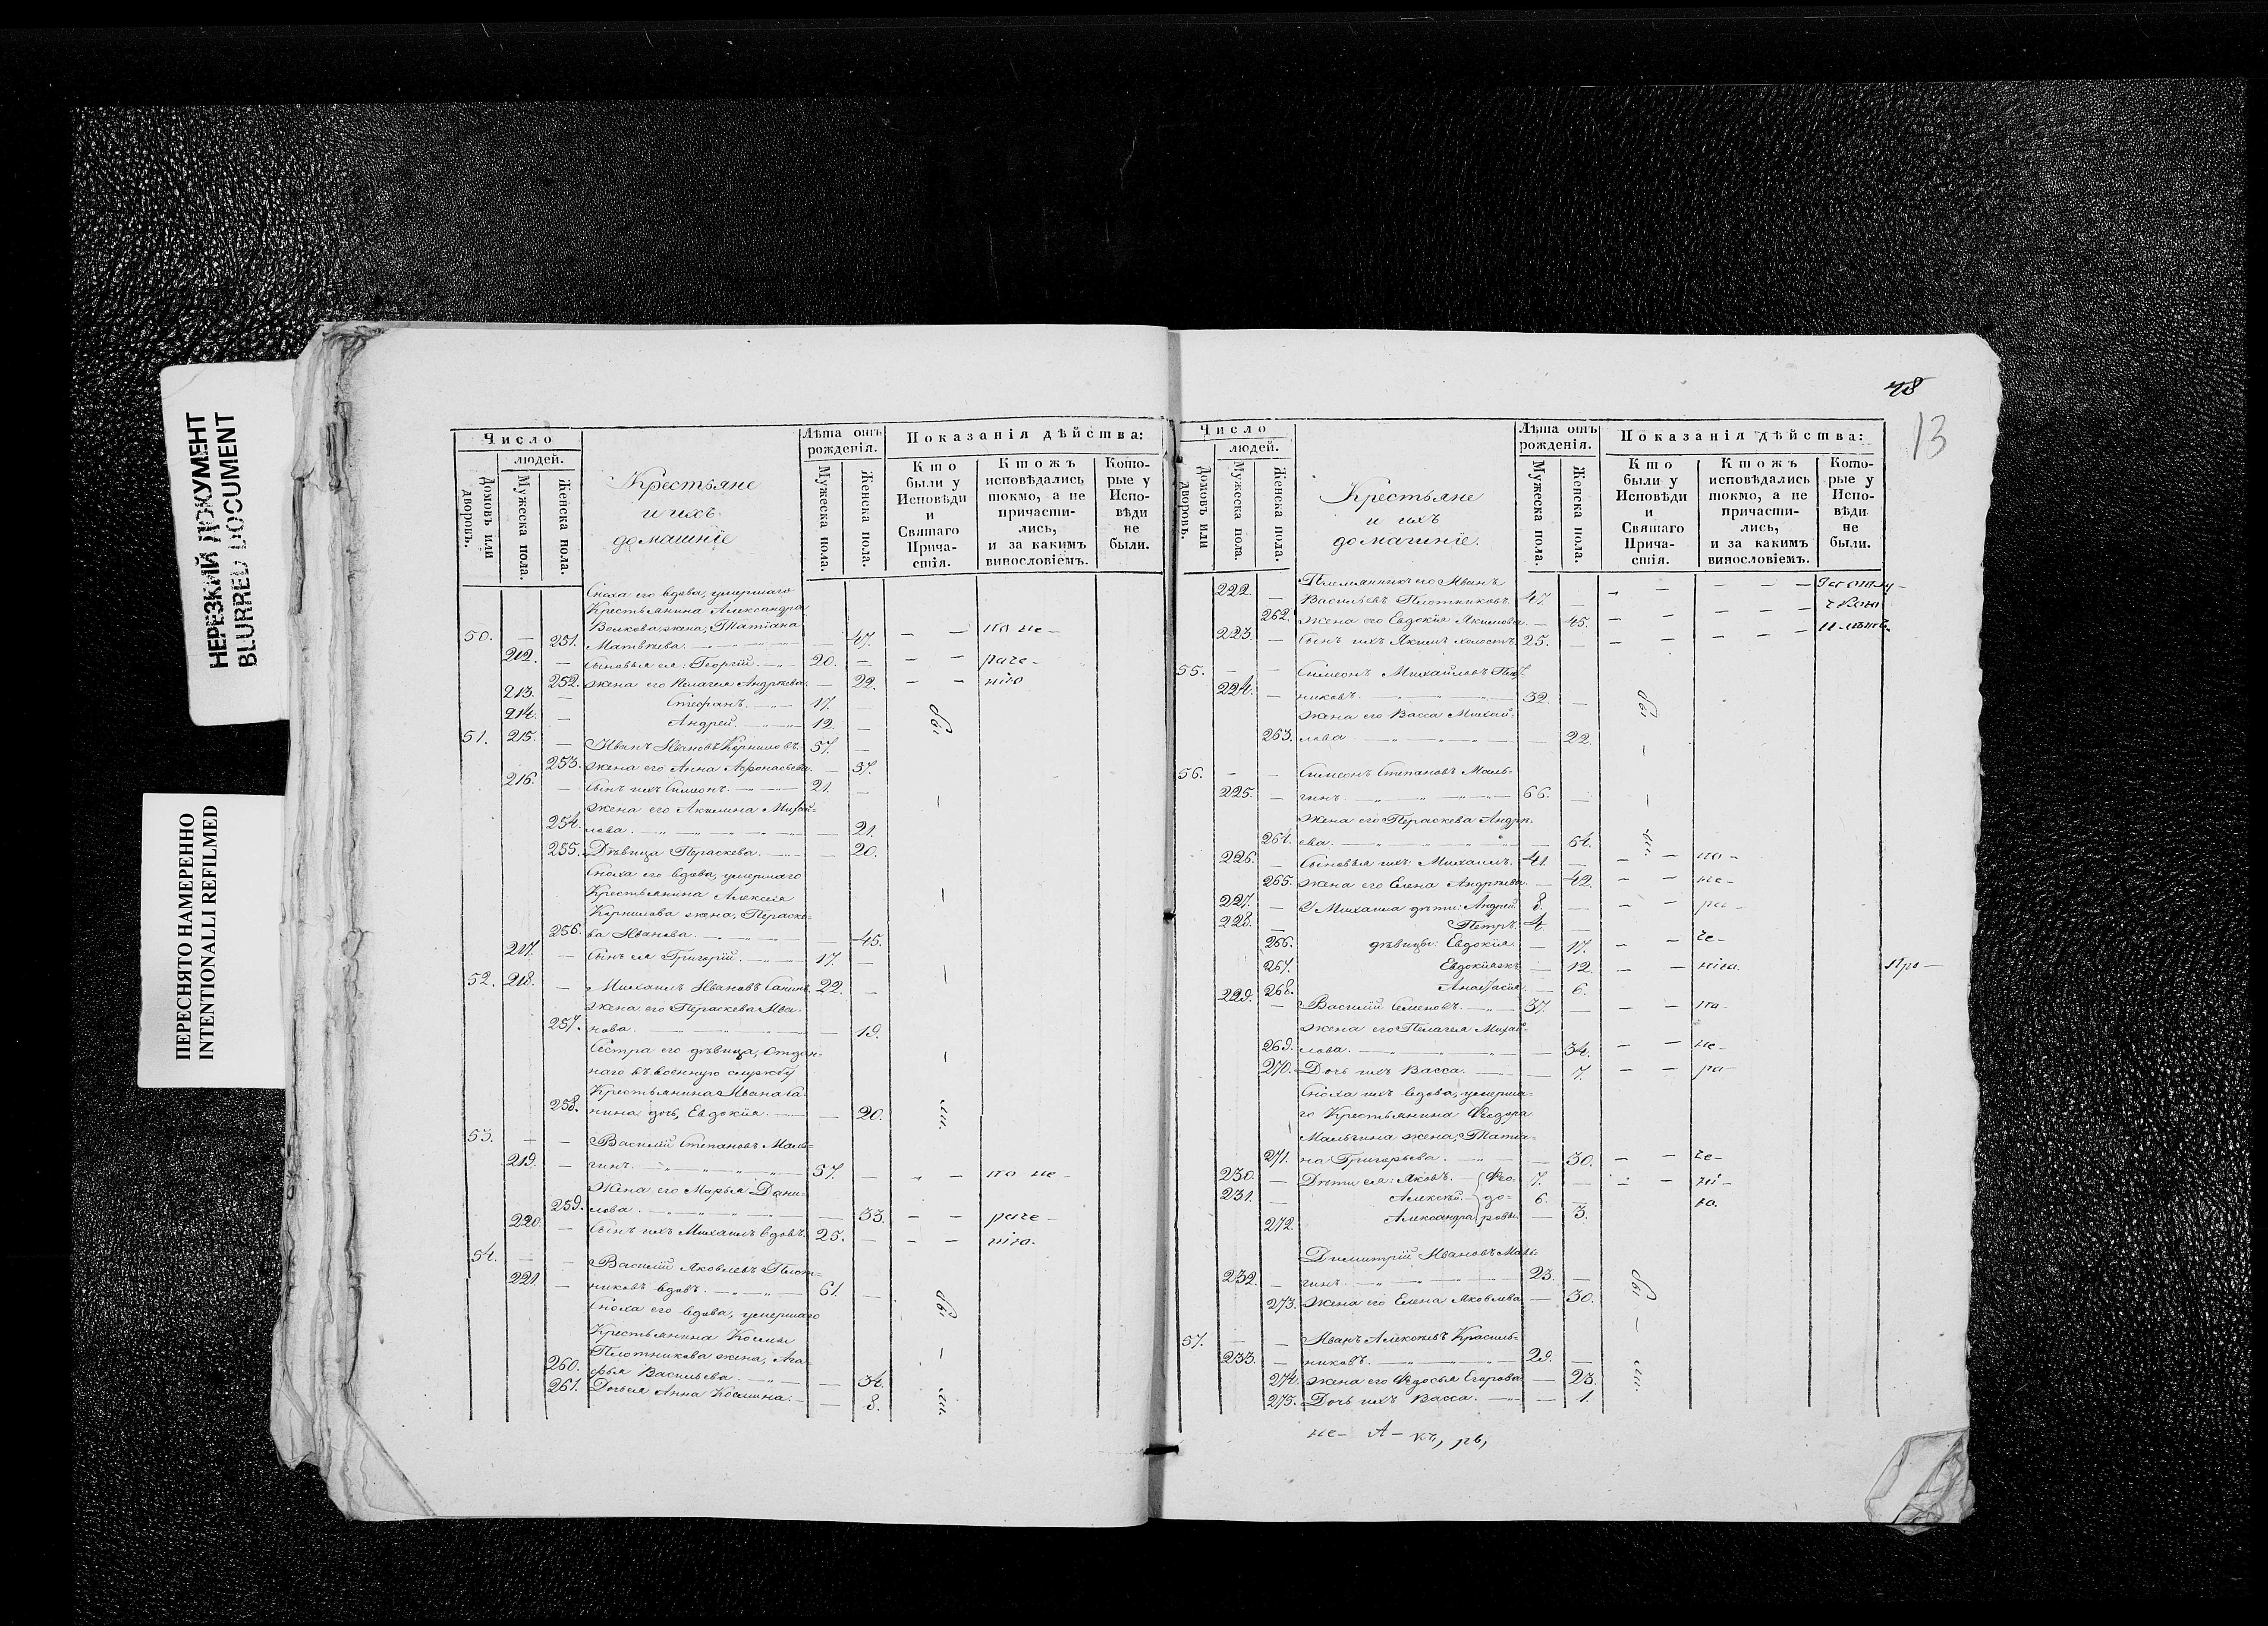 НЕРЕЗКИЙ ДОКУМЕНТ
BLURRED DOCUMENT
ПЕРЕСНЯТО НАМЕРЕННО
INTENTIONALLI REFILMED
Число
людей.
Домовъ или дворовъ.
Мужеска пола.
Женска пола.
Крестьяне
и ихъ
домашніе
Лѣта отъ рожденія.
Мужеска пола.
Женска пола.
Показанія дѣйства:
Кто были у Исповѣди и Святаго Причастія.
Ктожъ исповѣдались токмо, а не причастились, и за какимъ винословіемъ.
Которые у Исповѣди не были.
Сноха его вдова, умершаго
Крестьянина Александра
Волкова жена, Татіана
50. — 251. Матвѣева. — 47. — — по не-
212. — Сыновья ея: Георгій. 20. — — — раче-
252. жена его Пелагея Андрѣева. — 22. — — нію
213. — Стефанъ. 17. —
214. — Андрей. 12. —
бы
51. 215. — Иванъ Ивановъ Корниловъ. 57. —
253. жена его Анна Афонасьева. — 37.
216. — Сынъ ихъ Симеонъ. 21. —
жена его Акилина Михай=
254. лова. — 21.
255. Дѣвица Параскева. — 20.
Сноха его вдова, умершаго
Крестьянина Алексея
Корнилова жена, Параске=
256. ва Иванова. — 45.
217. — Сынъ ея Григорій. 17. —
52. 218. — Михаилъ Ивановъ Санинъ. 22. —
жена его Параскева Ива
257. нова. — 19.
Сестра его дѣвица, Отдан=
наго въ военную службу
Крестьянина Ивана Са
258. нина дочь, Евдокія. — 20.
ли.
53. — — Василій Степановъ Маль=
219. — гинъ. 57. — — — по не-
Жена его Марья Дани=
259. лова. — 33. — — раче-
220. — Сынъ ихъ Михаилъ вдовъ. 25. — — — нію.
54. — — Василій Яковлевъ Плот=
221. — никовъ вдовъ. 61. —
бы
Сноха его вдова, умершаго
Крестьянина Космы
Плотникова жена, Ага
260. фья Васильева. — 34.
261. Дочь ея Анна Космина. — 8.
ли.
48
13
Число
людей.
Домовъ или дворовъ.
Мужеска пола.
Женска пола.
Крестьяне
и ихъ
домашніе.
Лѣта отъ рожденія.
Мужеска пола.
Женска пола.
Показанія дѣйства:
Кто были у Исповѣди и Святаго Причастія.
Ктожъ исповѣдались токмо, а не причастились, и за какимъ винословіемъ.
Которые у Исповѣди не были.
Племянникъ его Иванъ
222. — Васильевъ Плотниковъ. 47. —
262. жена его Евдокія Акимова. — 45.
223. — Сынъ ихъ Якимъ холостъ. 25. —
55. — — Симеонъ Михайловъ Плот
224. — никовъ. 32. —
бы
Жена его Васса Михай=
263. лова. — 22.
56. — — Симеонъ Степановъ Маль=
225. — гинъ. 66. —
Жена его Параскева Андрѣ=
264. ева. — 64.
ли.
226. — Сыновья ихъ: Михаилъ. 41. — — — по-
265. жена его Елена Андрѣева. — 42. — — не-
227. — У Михаила дѣти: Андрей. 8. — — — ра-
228. — Петръ. 4. —
266. дѣвицы: Евдокія. — 17. — — че-
267. Евдокія жъ. — 12. — — нію.
Про-
268. Анастасія. — 6.
229. — Василій Семеновъ. 37. — — — по-
Жена его Пелагея Михай=
269. лова. — 34. — — не-
270. Дочь ихъ Васса. — 7. — — ра-
Сноха ихъ вдова, умерша=
го Крестьянина Феодора
Мальгина жена, Татіа=
271. на Григорьева. — 30. — — че-
230. — Дѣти ея: Яковъ. Фео- 7. — — — ні-
231. — Алексѣй. до- 6. — ю.
272. Александра ровы. — 3.
Димитрій Ивановъ Маль
232. — гинъ. 23. —
бы
273. жена его Елена Яковлева. — 30.
57. — — Иванъ Алексѣевъ Красиль=
233. — никовъ. 29. —
274. жена его Федосья Егорова. — 23.
ли.
275. Дочь ихъ Васса. — 1.